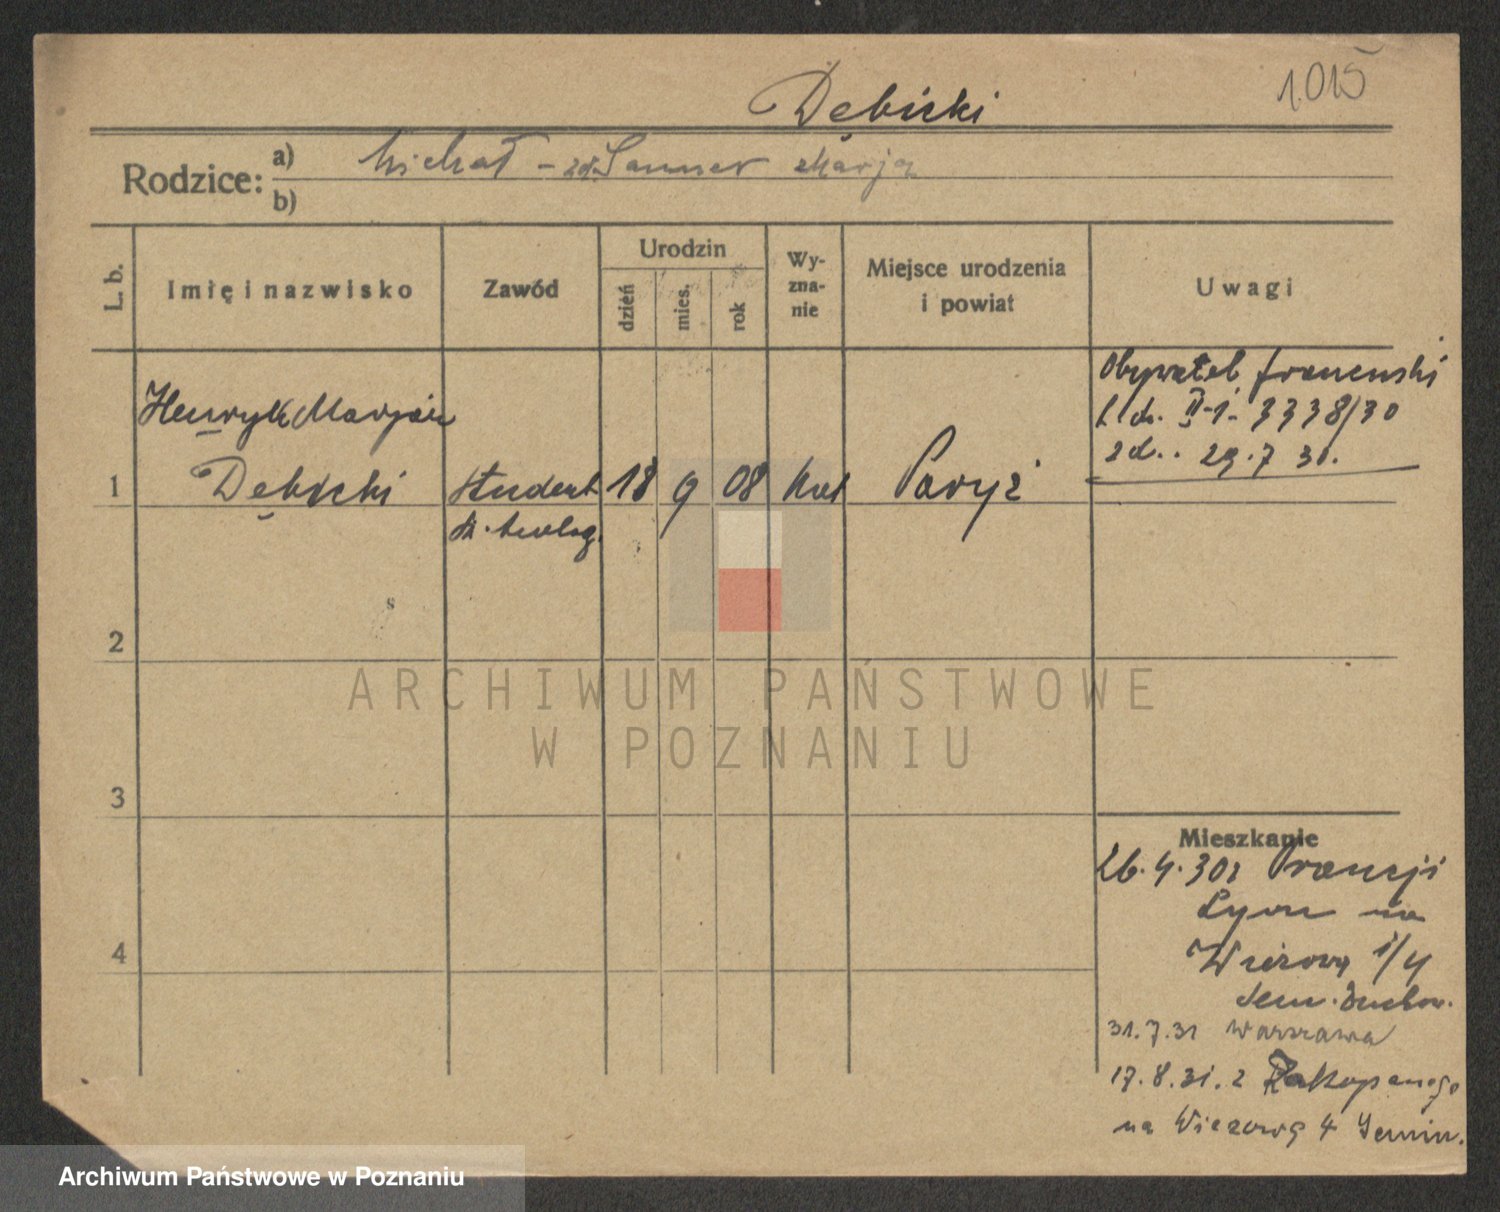 Dębicki
1.015
Rodzice:
a) Michał - zd. Sanner Marja
b)
L. b.
Imię i nazwisko
Zawód
Urodzin
dzień
mies.
rok
Wy-
zna-
nie
Miejsce urodzenia
i powiat
Uwagi
Obywatel francuski
L. dz. II-1- 3338/30
zd.. 29.7 30.
Henryk Marjan
1 Dębicki student 18 9 08 kat Paryż
2
3
4
Mieszkanie
26.4.30 z Francji
Lyon na
Wieżową 1/4
Sem. Duchow.
31.7.31 Warszawa
17.8.31. z Zakopanego
na Wieżową 4 Semin.
s
ARCHIWUM PAŃSTWOWE
W POZNANIU
Archiwum Państwowe w Poznaniu